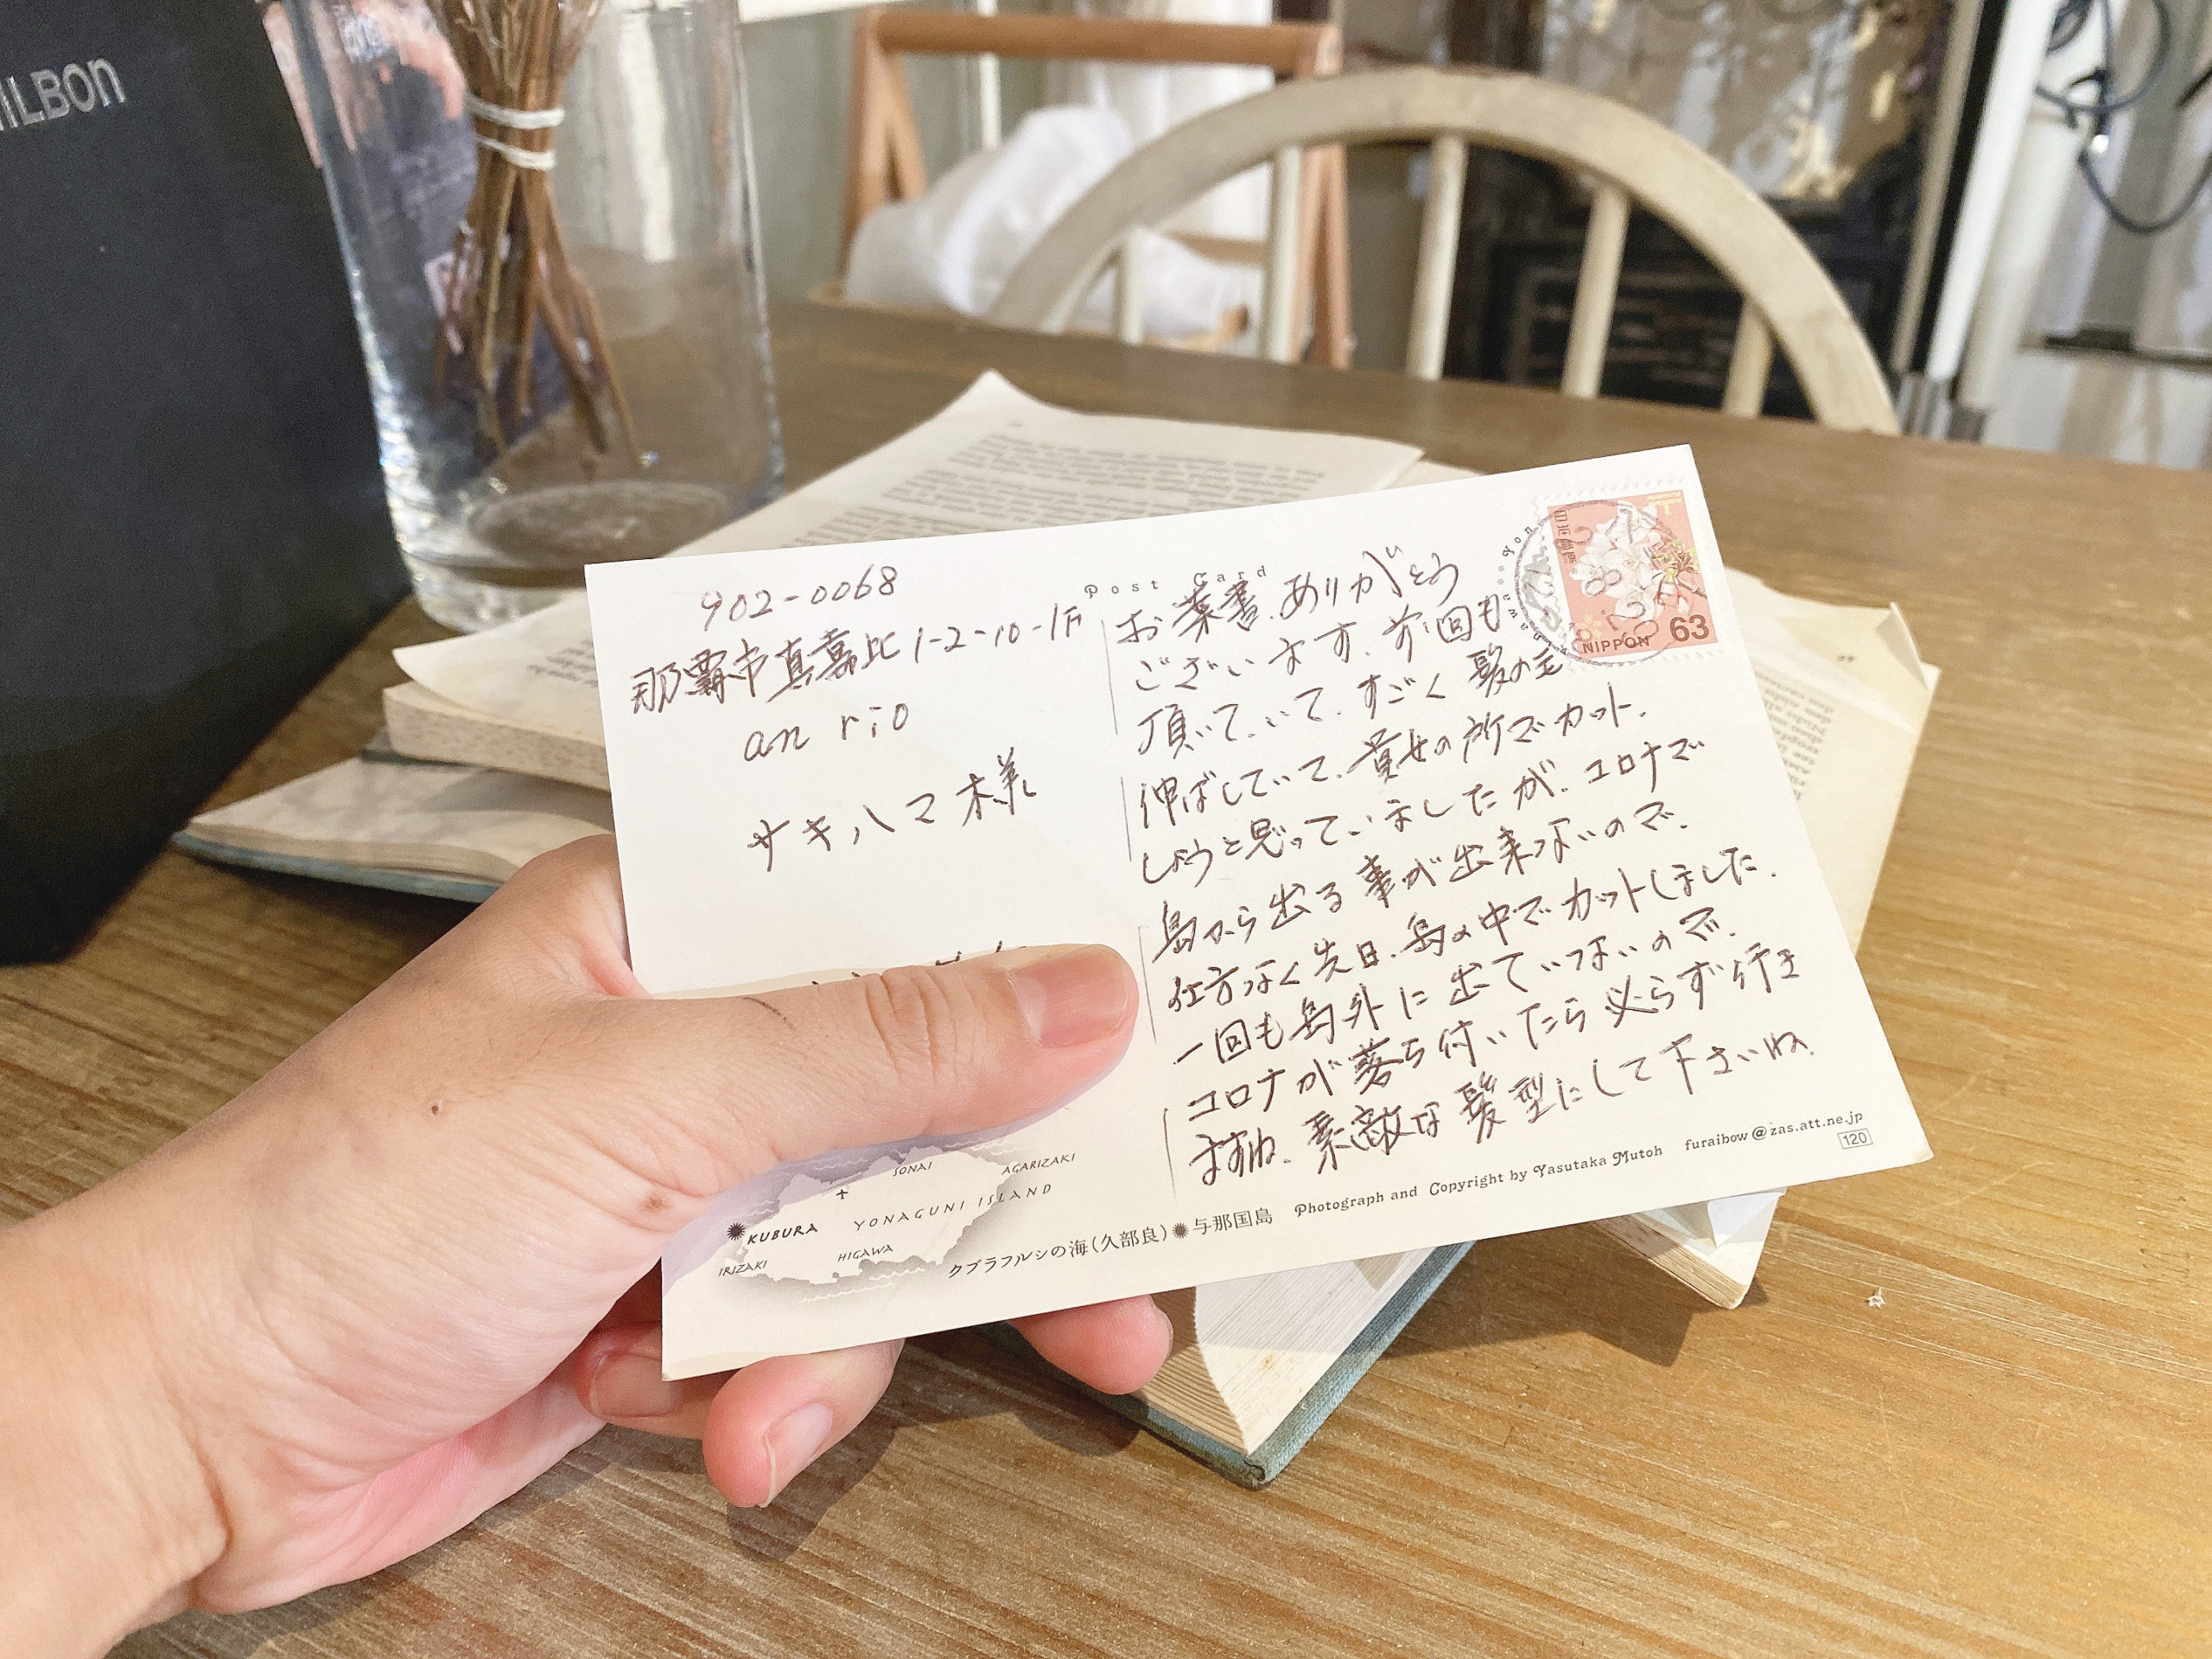 ILBON
902-0068
那覇市真嘉比1-2-10-1F
an rio
サキハマ様
Post Card
お葉書、ありがとう
ございます、前回も
頂いていて、すごく髪の毛
伸ばしていて、貴女の所でカット、
しようと思っていましたが、コロナで
島から出る事が出来ないので、
仕方なく先日、島の中でカットしました、
一回も島外に出ていないので、
コロナが落ち付いたら必らず行き
ますね、素敵な髪型にして下さいね、
日本郵便
NIPPON 63
SONAI
AGARIZAKI
YONAGUNI ISLAND
KUBURA
HIGAWA
IRIZAKI
クブラフルシの海(久部良)✹与那国島
Photograph and Copyright by Yasutaka Mutoh furaibow@zas.att.ne.jp
120